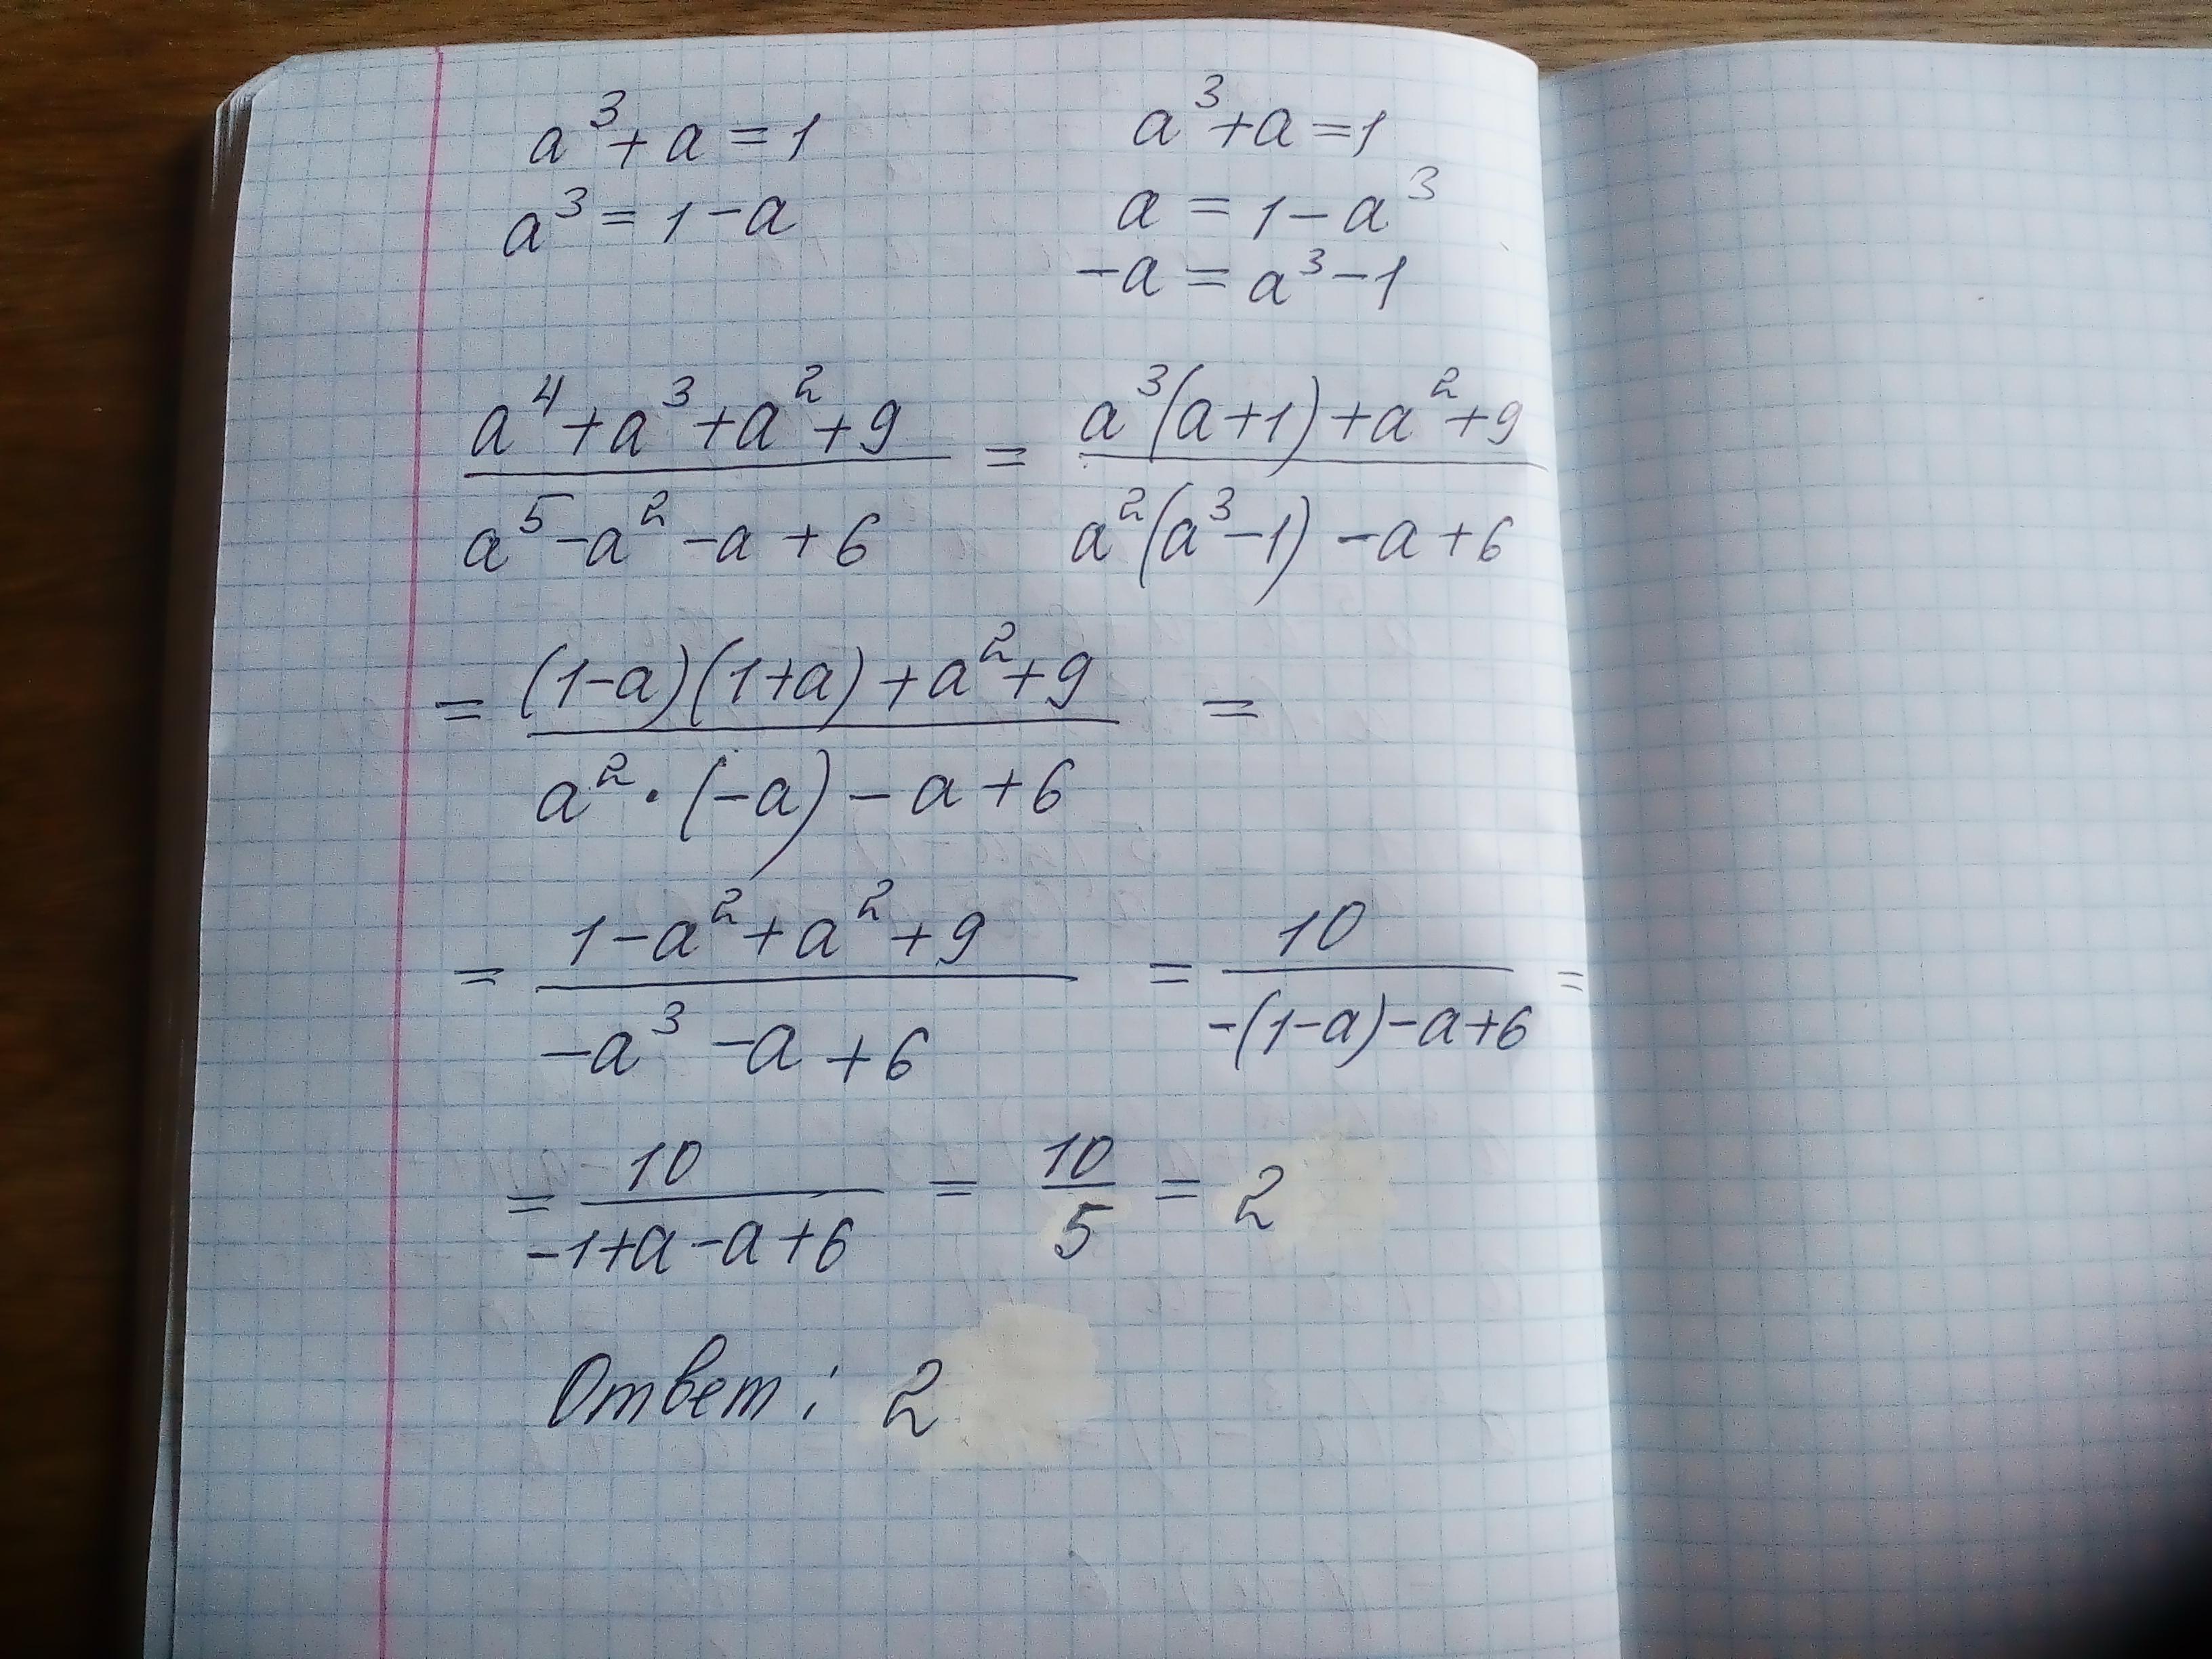 a³+a=1
a³=1-a
a³+a=1
a=1-a³
-a=a³-1
(a⁴+a³+a²+9)/(a⁵-a²-a+6) = (a³(a+1)+a²+9)/(a²(a³-1)-a+6)
= ((1-a)(1+a)+a²+9)/(a²·(-a)-a+6) =
= (1-a²+a²+9)/(-a³-a+6) = 10/(-(1-a)-a+6) =
= 10/(-1+a-a+6) = 10/5 = 2
Ответ: 2